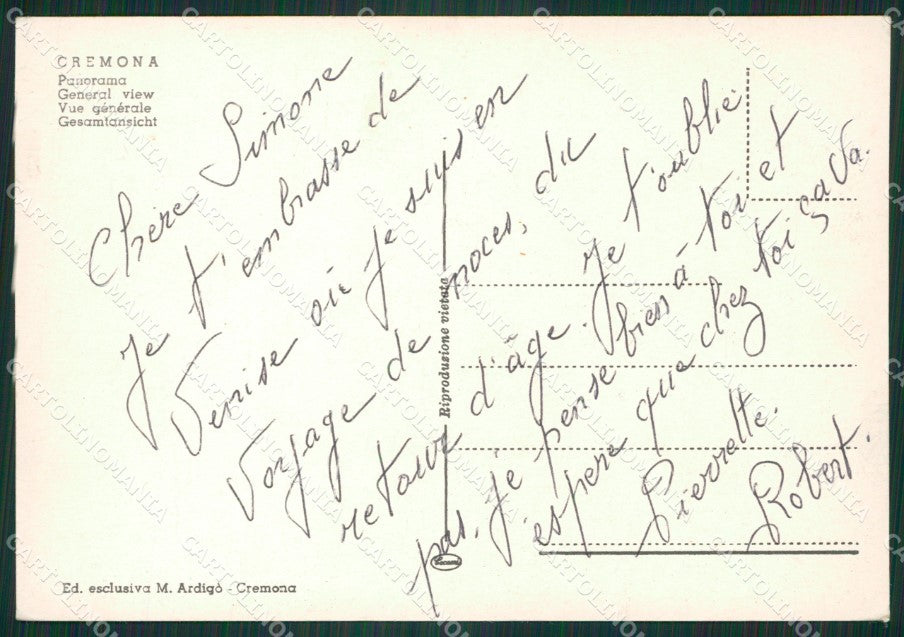 CREMONA
Panorama
General view
Vue générale
Gesamtansicht
Chère Simone
Je t'embrasse de
Venise où je suis en
Voyage de noces, du
retour d'âge. Je t'oublie
pas, je pense bien à toi et
espere que chez toi ça va.
Pierrette.
Robert.
Riproduzione vietata
Ed. esclusiva M. Ardigò - Cremona
CARTOLINOMANIA